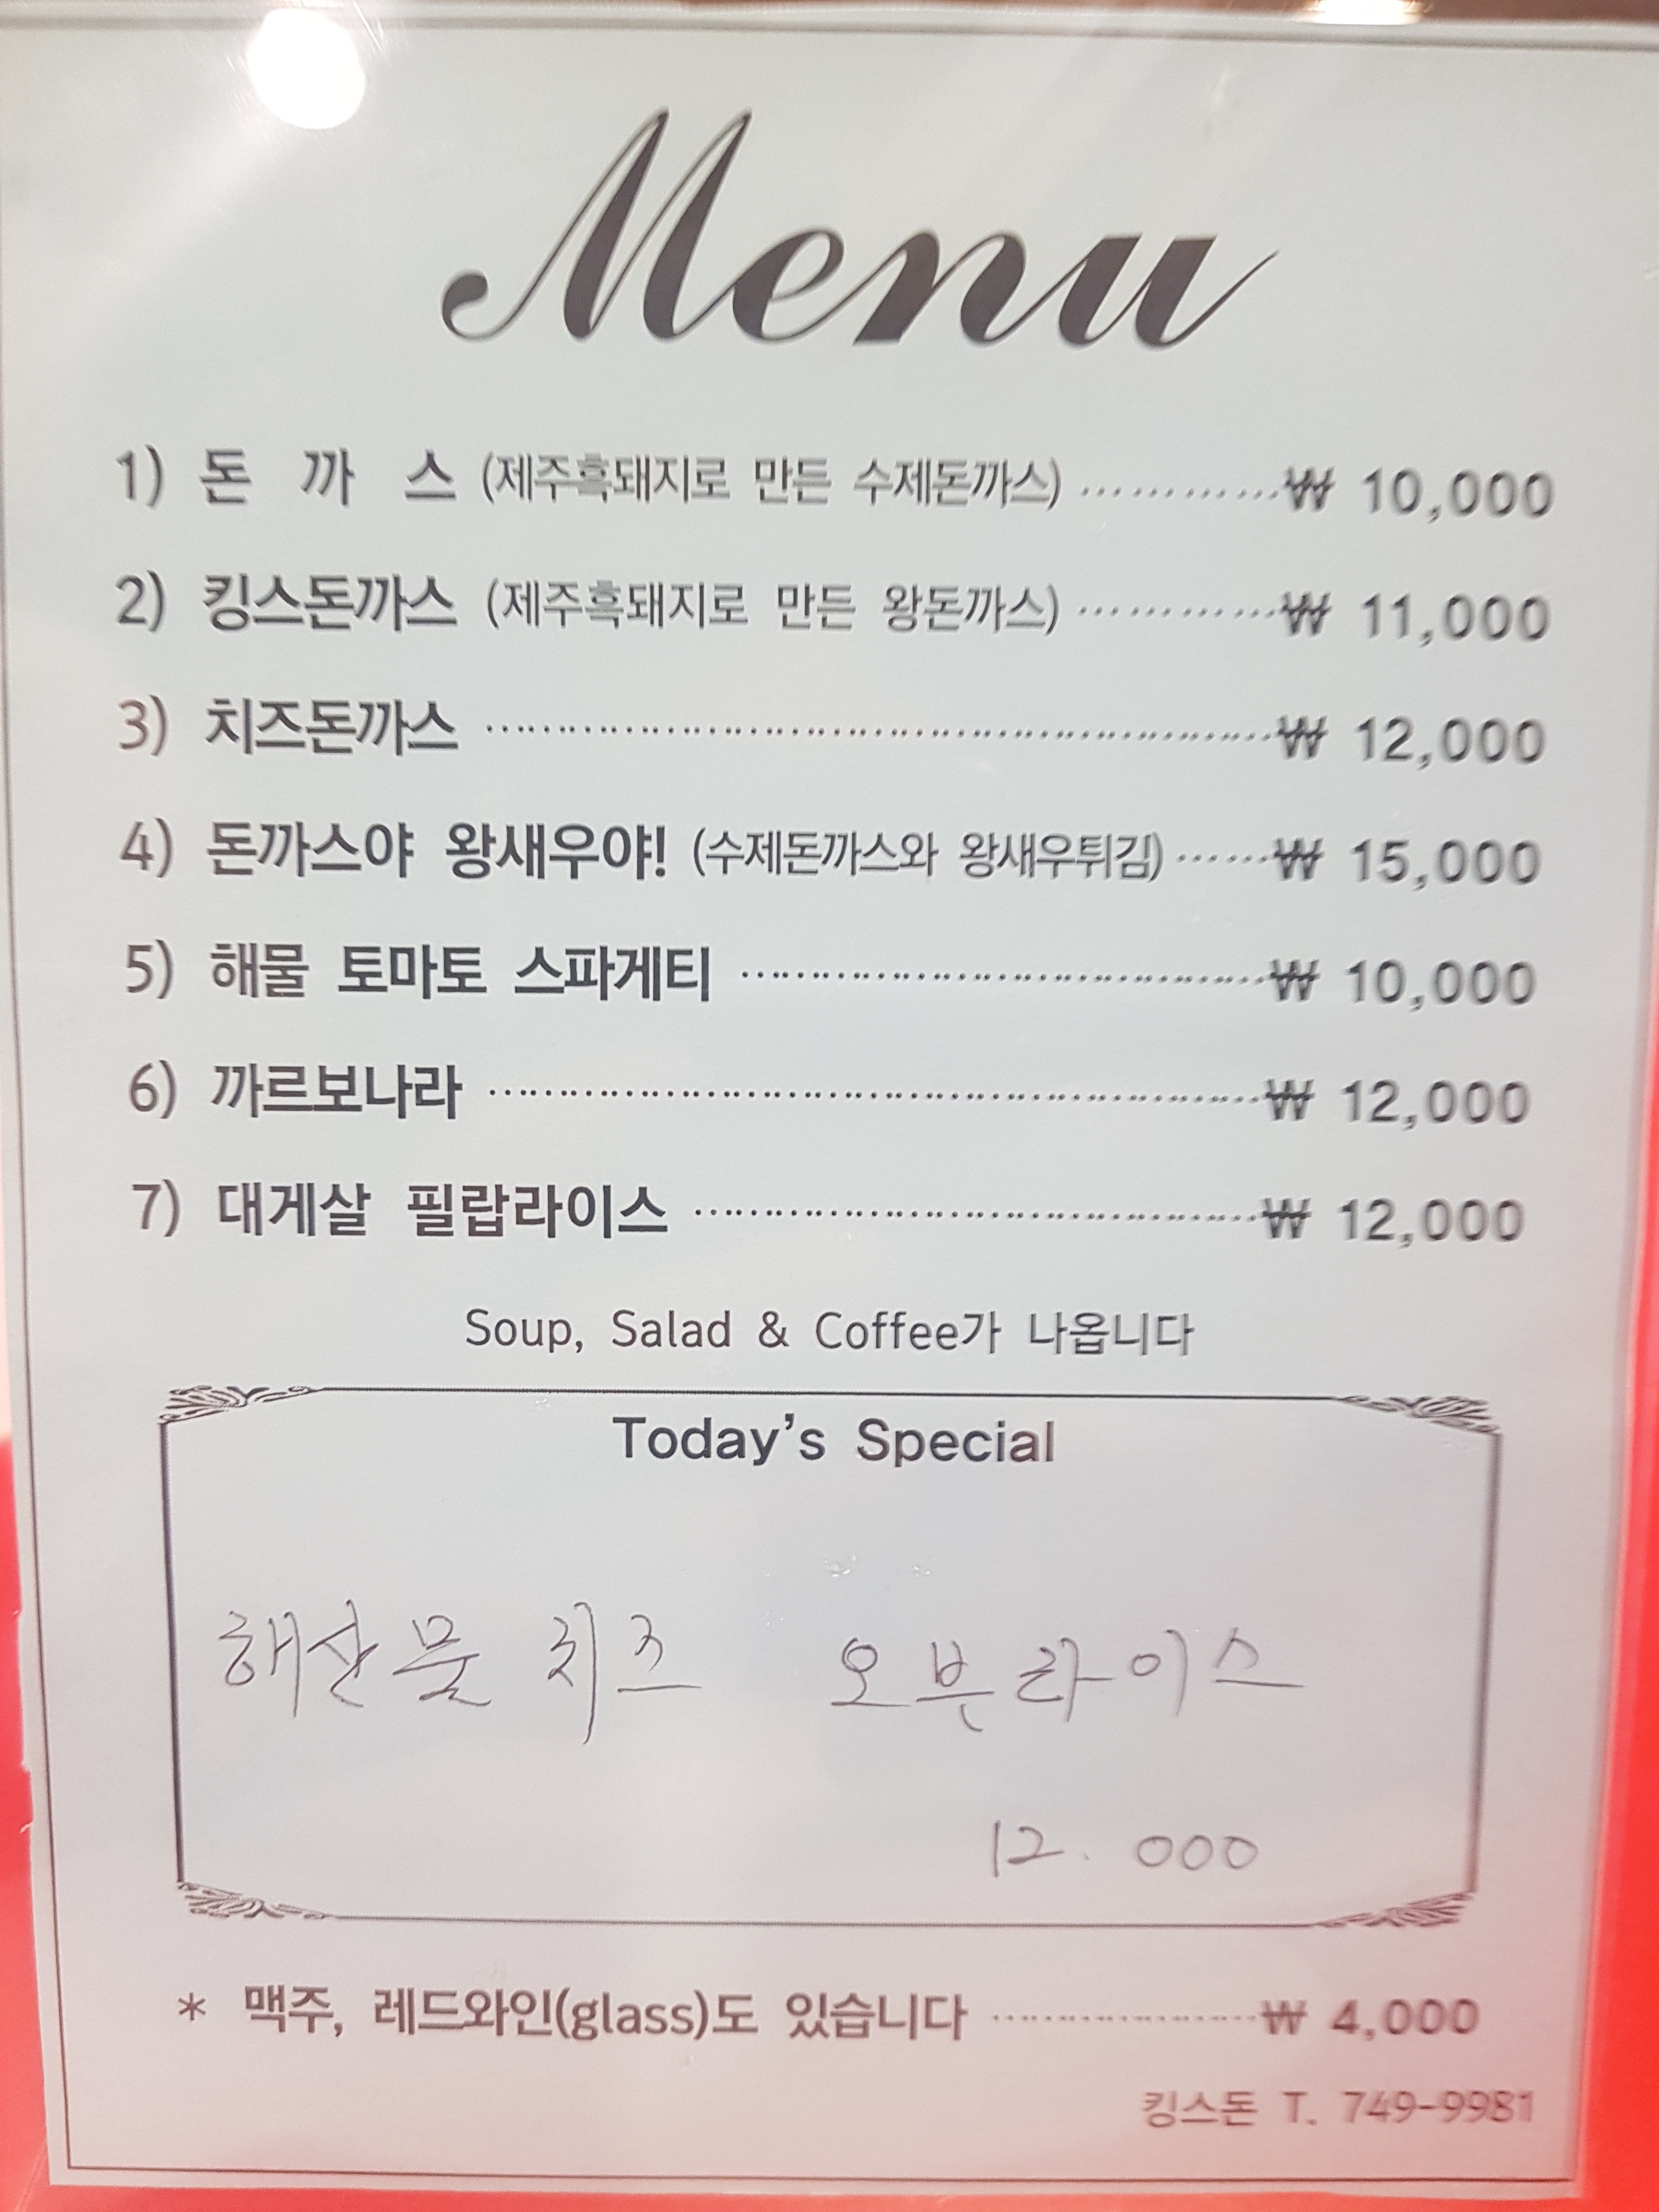 Menu
1) 돈 까 스 (제주흑돼지로 만든 수제돈까스) ············₩ 10,000
2) 킹스돈까스 (제주흑돼지로 만든 왕돈까스) ············₩ 11,000
3) 치즈돈까스 ············₩ 12,000
4) 돈까스야 왕새우야! (수제돈까스와 왕새우튀김) ······₩ 15,000
5) 해물 토마토 스파게티 ············₩ 10,000
6) 까르보나라 ············₩ 12,000
7) 대게살 필랍라이스 ············₩ 12,000
Soup, Salad & Coffee가 나옵니다
Today's Special
해산물 치즈 오븐라이스
12.000
* 맥주, 레드와인(glass)도 있습니다 ············₩ 4,000
킹스돈 T. 749-9981